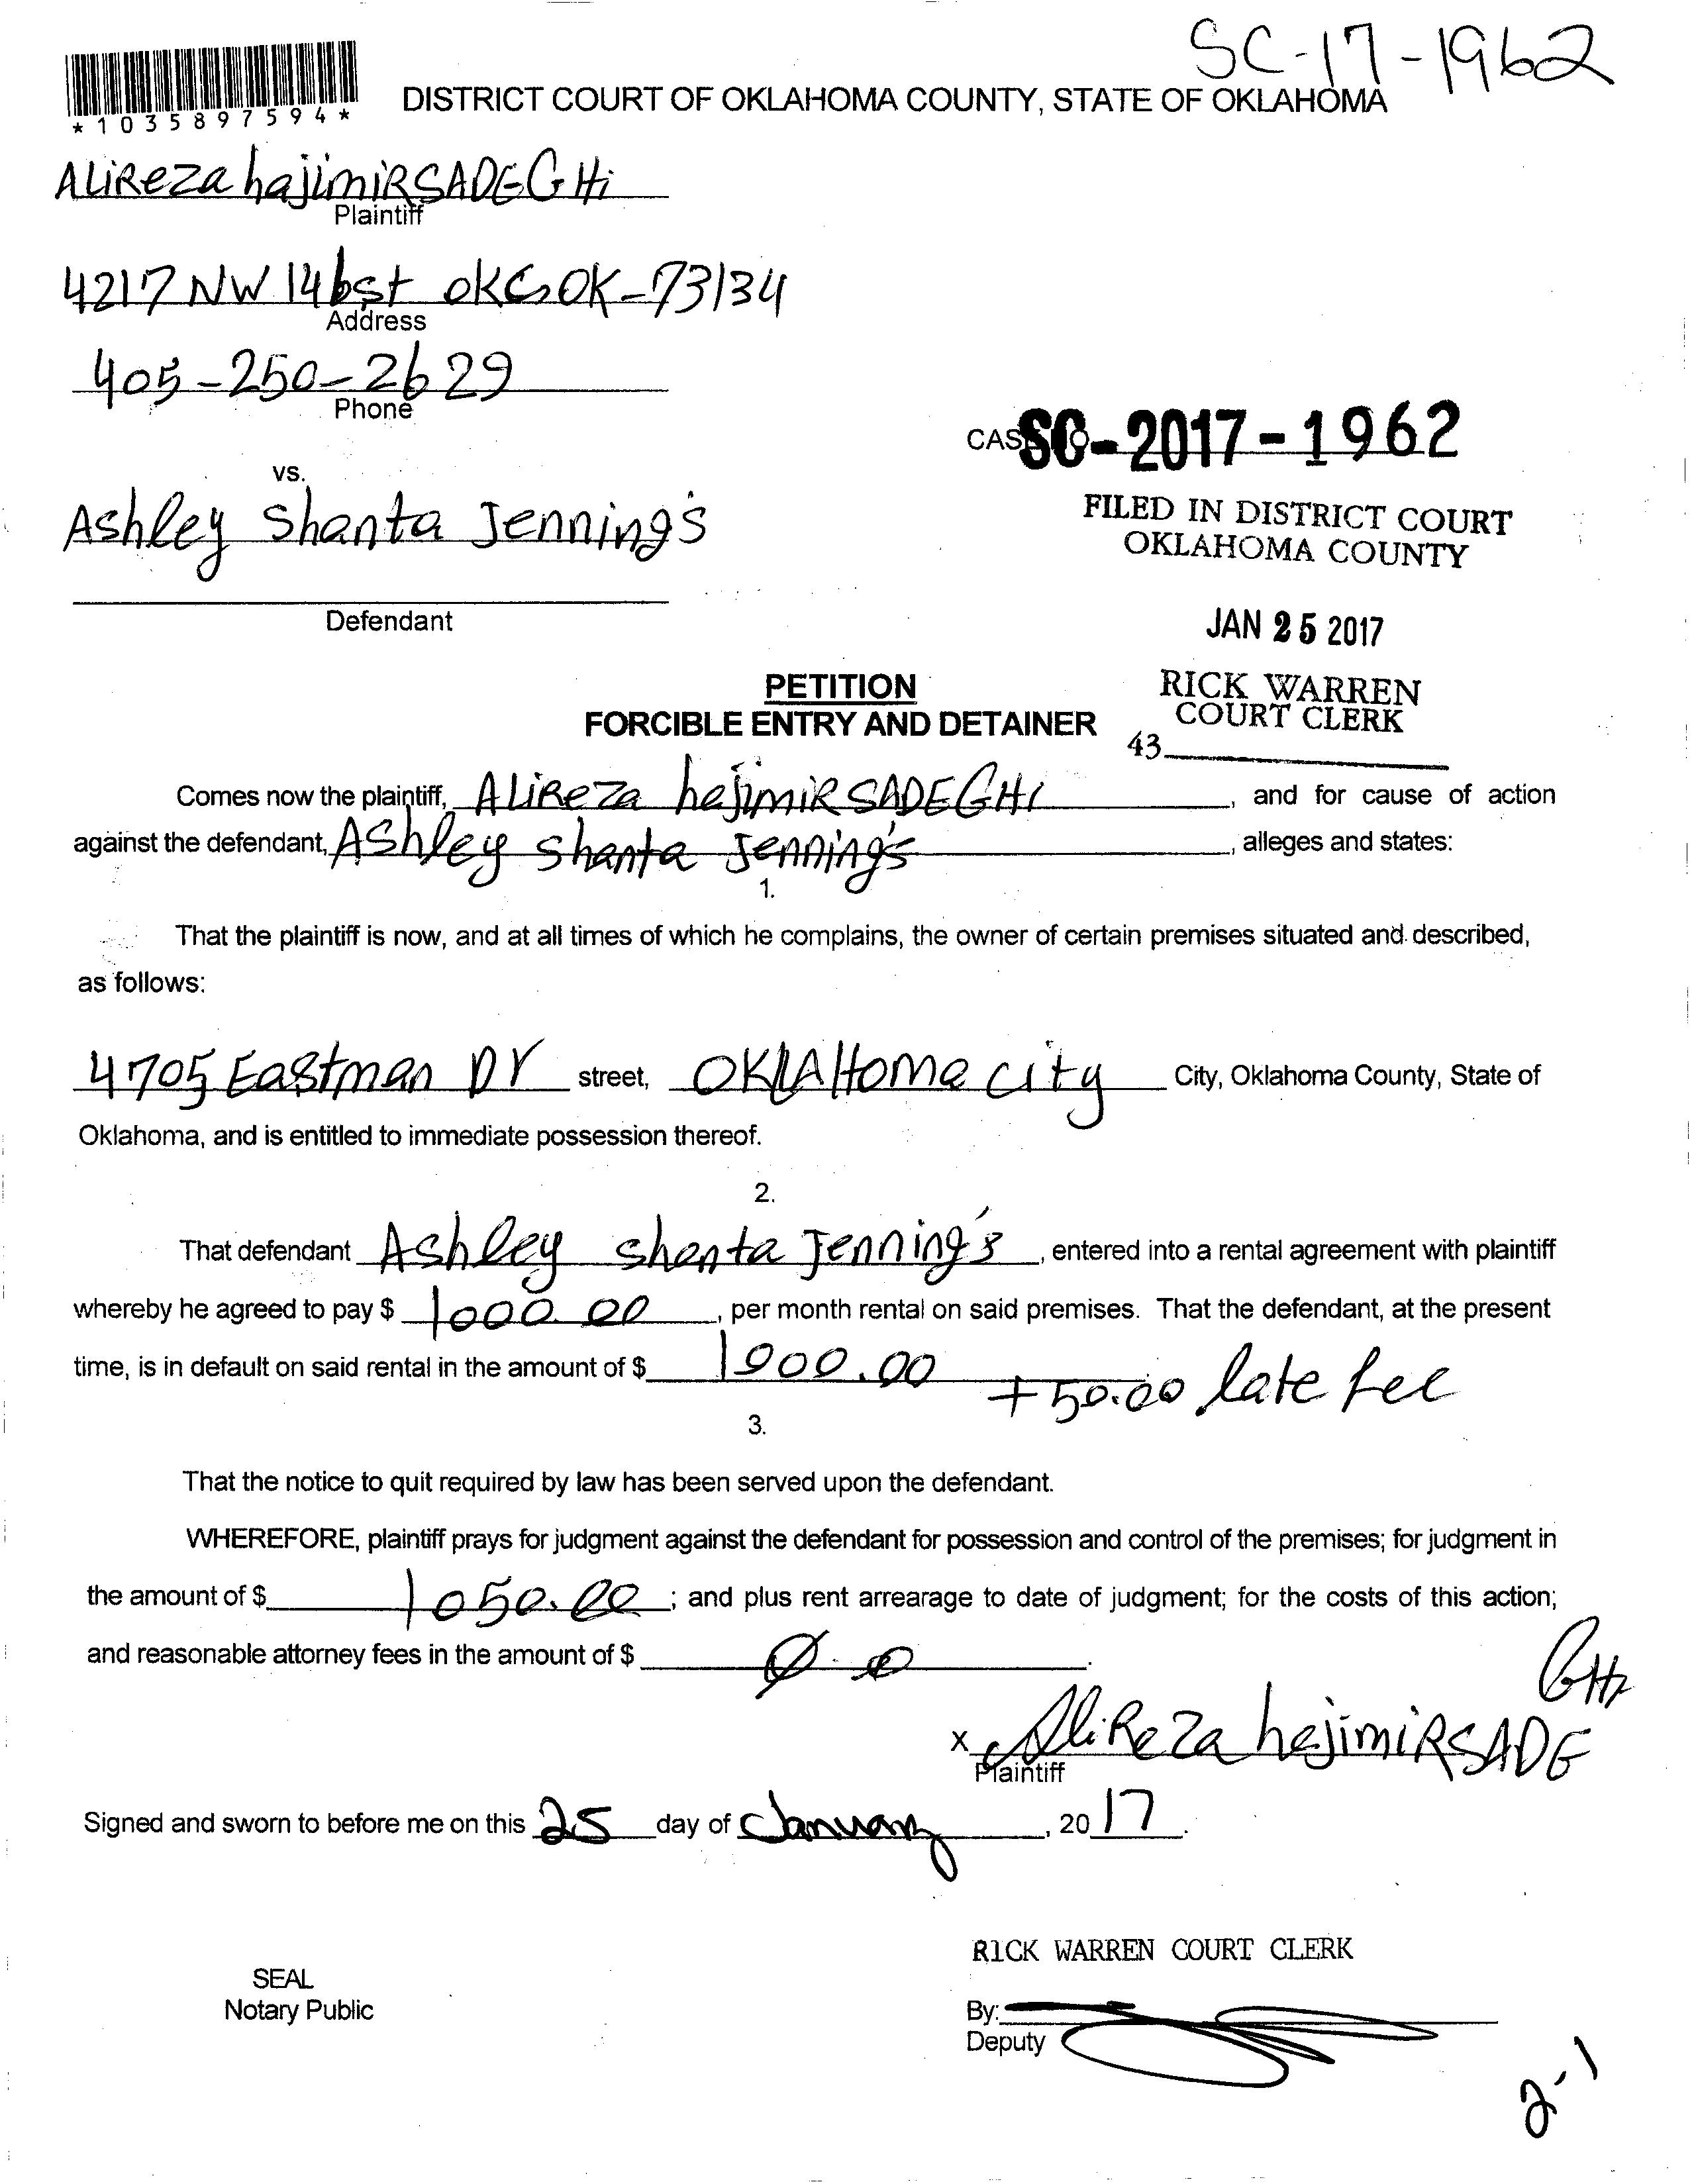 SC-17-1962
*1035897594*
DISTRICT COURT OF OKLAHOMA COUNTY, STATE OF OKLAHOMA
ALiReza hajimiRSADEGHi
Plaintiff
4217 NW 146st OKC, OK-73134
Address
405-250-2629
Phone
CAS SC-2017-1962
vs.
Ashley Shanta Jenning's
FILED IN DISTRICT COURT
OKLAHOMA COUNTY
Defendant
JAN 25 2017
PETITION
FORCIBLE ENTRY AND DETAINER
RICK WARREN
COURT CLERK
43
Comes now the plaintiff, ALiReza hajimiRSADEGHi, and for cause of action
against the defendant, AShley shanta Jenning's, alleges and states:
1.
That the plaintiff is now, and at all times of which he complains, the owner of certain premises situated and described,
as follows:
4705 Eastman DY street, OKlAHoma city City, Oklahoma County, State of
Oklahoma, and is entitled to immediate possession thereof.
2.
That defendant AShley shanta Jenning's, entered into a rental agreement with plaintiff
whereby he agreed to pay $ 1000.00, per month rental on said premises. That the defendant, at the present
time, is in default on said rental in the amount of $ 1000.00 + 50.00 late fee
3.
That the notice to quit required by law has been served upon the defendant.
WHEREFORE, plaintiff prays for judgment against the defendant for possession and control of the premises; for judgment in
the amount of $ 1050.00; and plus rent arrearage to date of judgment; for the costs of this action;
and reasonable attorney fees in the amount of $ 0.0.
X ALiReza hajimiRSADEGHi
Plaintiff
Signed and sworn to before me on this 25 day of January, 2017.
RICK WARREN COURT CLERK
SEAL
Notary Public
By:
Deputy
2-1